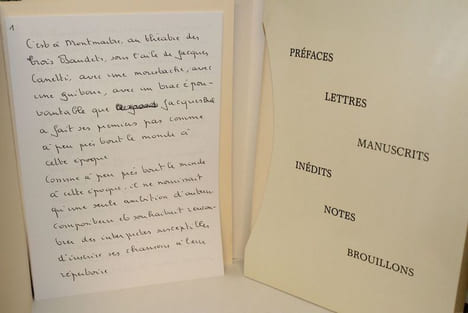 1
C'est à Montmartre, au théâtre des
trois Baudets, sous l'aile de Jacques
Canetti, avec une moustache, avec
une guitare, avec un trac épou-
vantable que Jacques
a fait ses premiers pas comme
à peu près tout le monde à
cette époque
Comme à peu près tout le monde
à cette époque, il ne nourrissait
qu'une seule ambition d'auteur
compositeur et souhaitait rencon-
trer des interprètes susceptibles
d'inscrire ses chansons à leur
répertoire
PRÉFACES
LETTRES
MANUSCRITS
INÉDITS
NOTES
BROUILLONS